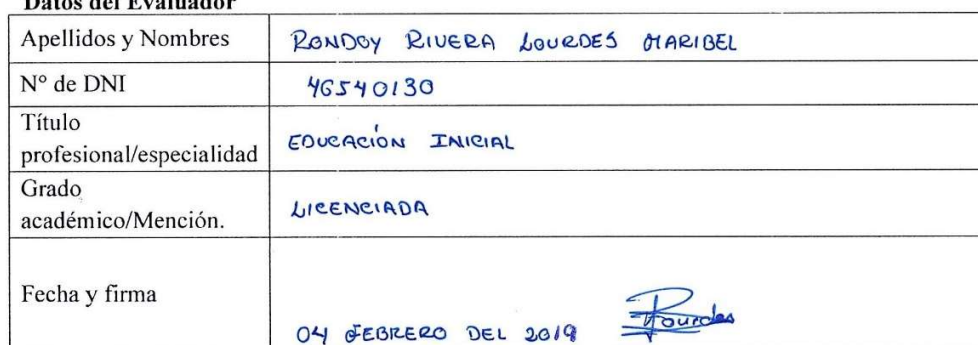 Datos del Evaluador
Apellidos y Nombres RONDOY RIVERA LOURDES MARIBEL
N° de DNI 46540130
Título
profesional/especialidad EDUCACIÓN INICIAL
Grado
académico/Mención. LICENCIADA
Fecha y firma
04 FEBRERO DEL 2019 Lourdes